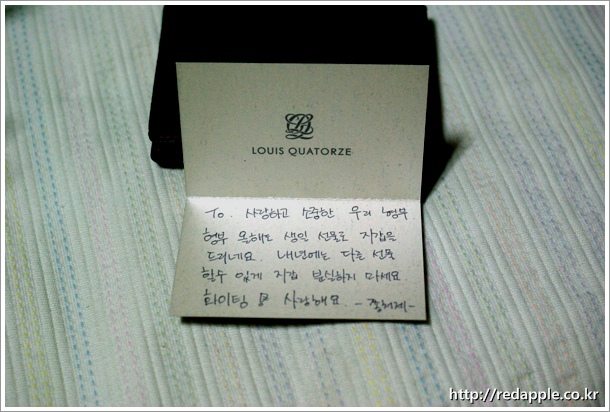 LOUIS QUATORZE
To. 사랑하고 소중한 우리 형부
형부 올해도 생일 선물로 지갑을
드리네요. 내년에는 다른 선물
할수 있게 지갑 분실하지 마세요
화이팅 사랑해요. -처제-
http://redapple.co.kr